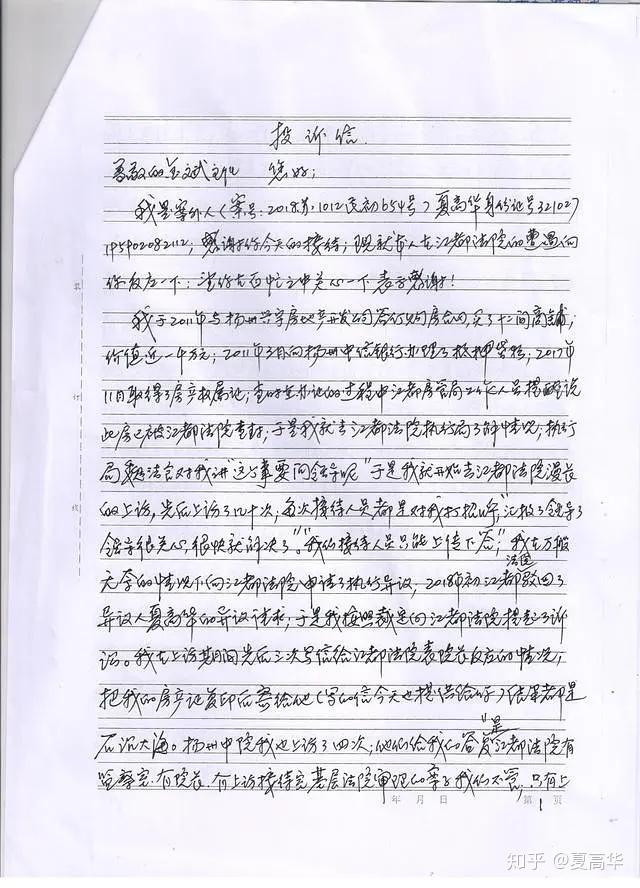 投诉信
尊敬的 主任 您好；
我是案外人（案号：2018苏1012民初654号）夏高华身份证号321027
195902082112，感谢你今天的接待；现就本人在江都法院的遭遇向
你反应一下；望你在百忙之中关心一下表示感谢！
我于2011年与扬州兴宇房地产开发公司签订购房合同买了十二间商铺，
价值近一千万元；2011年3月向扬州中信银行办理了抵押贷款，2017年
11月取得了房产权属证；当时在办证的过程中江都房管局工作人员提醒说
此房已被江都法院查封；于是我就去江都法院执行局了解情况；执行
局 法官对我讲“这个事要问领导呢”于是我就开始去江都法院漫长
的上访，先后上访了几十次；每次接待人员都是对我打招呼，“汇报了领导了
领导很关心，很快就解决了”。“我们接待人员只能上传下答；”我在万般
无奈的情况下向江都法院申请了执行异议，2018年初江都法院驳回了
异议人夏高华的异议请求；于是我按照裁定向江都法院提起了诉
讼。我在上访期间先后三次写信给江都法院袁院长反应的情况，
把我的房产证复印后寄给他（写的信今天也提供给你）结果都是
石沉大海。扬州中院我也上访了四次；他们给我的答复是“江都法院有
监察室、有院长、有上访接待室基层法院审理的案子我们不管，只有上
年 月 日 第 1 页
装 订 线
知乎 @夏高华